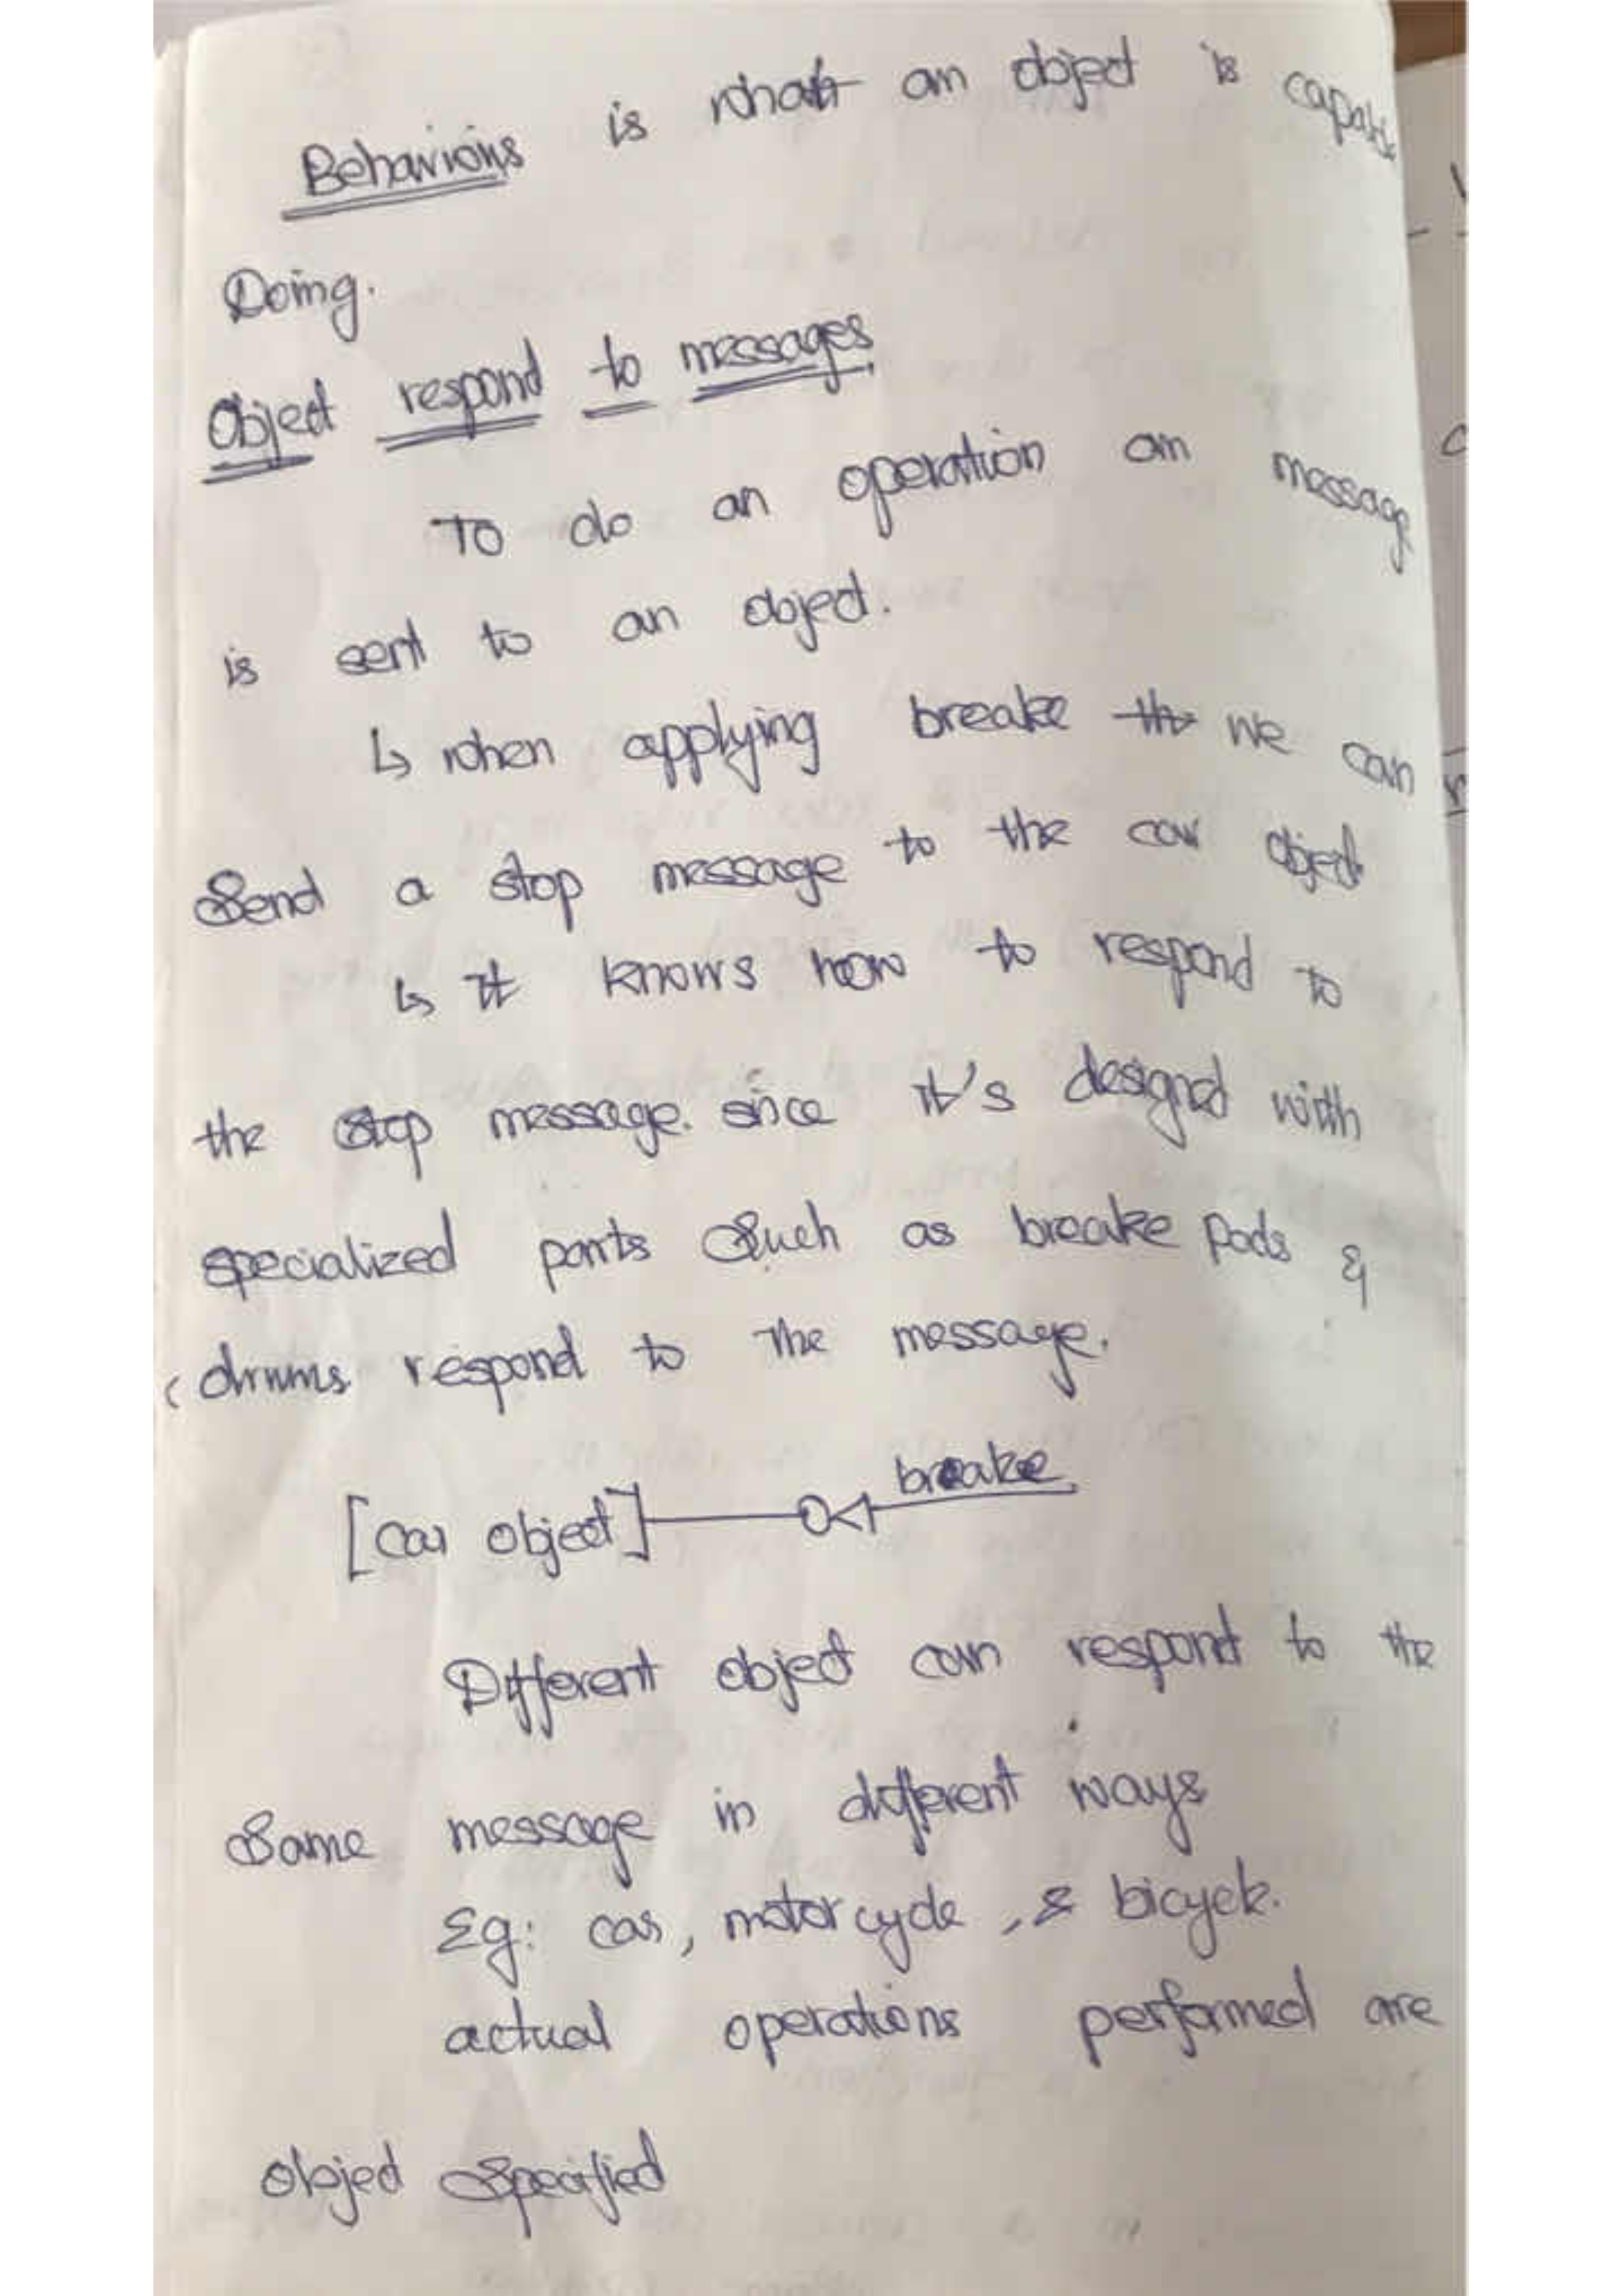 Behaviours is what an object is capable
Doing.
Object respond to messages.
To do an operation an message
is sent to an object.
↳ when applying breake we can
Send a stop message to the car object
↳ It knows how to respond to
the stop message. since it's designed with
specialized parts Such as breake pads &
drums respond to the message.
[car object] breake
Different object can respond to the
Same message in different ways
Eg: car, motor cycle, & bicycle.
actual operations performed are
object specified